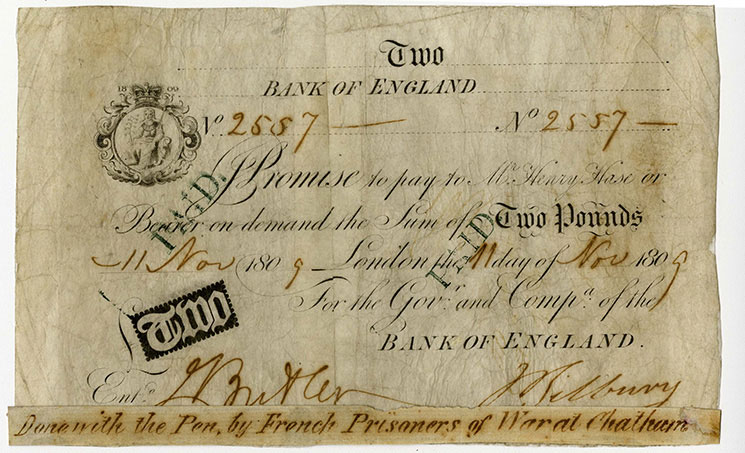 Two
BANK OF ENGLAND
18 09
No 2557 — No 2557 —
I Promise to pay to Mr. Henry Hase or
Bearer on demand the Sum of Two Pounds
PAID.
PAID
11 Nov 1809 — London the 11 day of Nov 1809
For the Govr. and Compa. of the
BANK OF ENGLAND.
Two
Entd. J Butler
Done with the Pen, by French Prisoners of War at Chatham